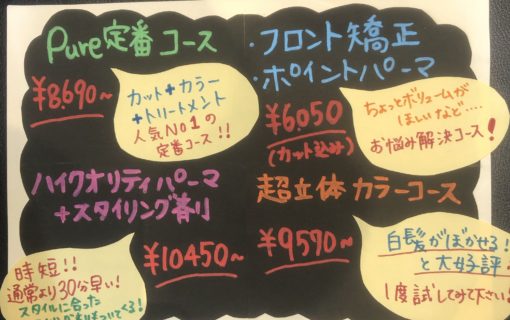 Pure定番コース
¥8690~
カット+カラー
+トリートメント
人気No1の
定番コース!!
・フロント矯正
・ポイントパーマ
¥6,050
(カット込み)
ちょっとボリュームが
ほしいなど....
お悩み解決コース!
ハイクオリティパーマ
+スタイリング剤
¥10450~
時短!!
通常より30分早い!
スタイルに合った
超立体カラーコース
¥9570~
白髪がぼかせる!
と大好評!
1度試してみて下さい!